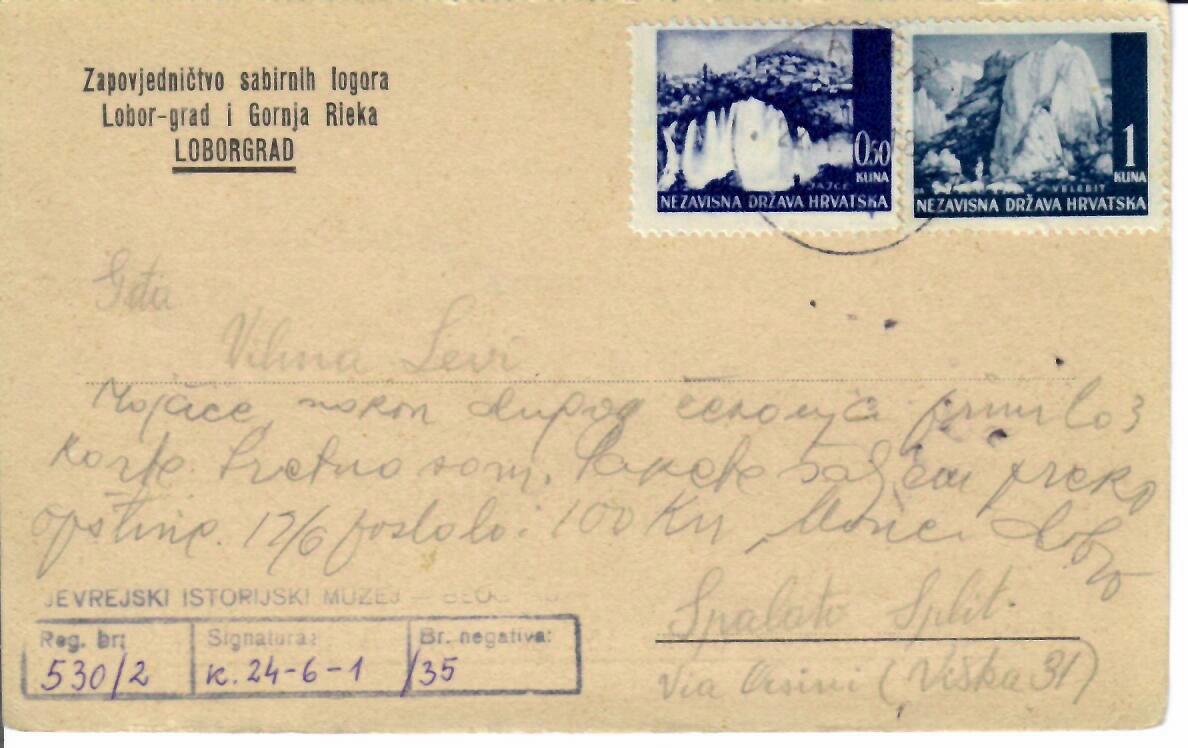 Zapovjedničtvo sabirnih logora
Lobor-grad i Gornja Rieka
LOBORGRAD
JAJCE
0.50
KUNA
NEZAVISNA DRŽAVA HRVATSKA
VELEBIT
1
KUNA
NEZAVISNA DRŽAVA HRVATSKA
Gđa
Vilma Levi
nakon dugog primila 3
karte. Sretna sam. Pakete šaljem preko
opštine. 12/6 poslala 100 Kn, dobro
Spalato Split.
Via Orsini (Viška 31)
JEVREJSKI ISTORIJSKI MUZEJ — BEOG
Reg. br: Signatura: Br. negativa:
530/2 K. 24-6-1 /35